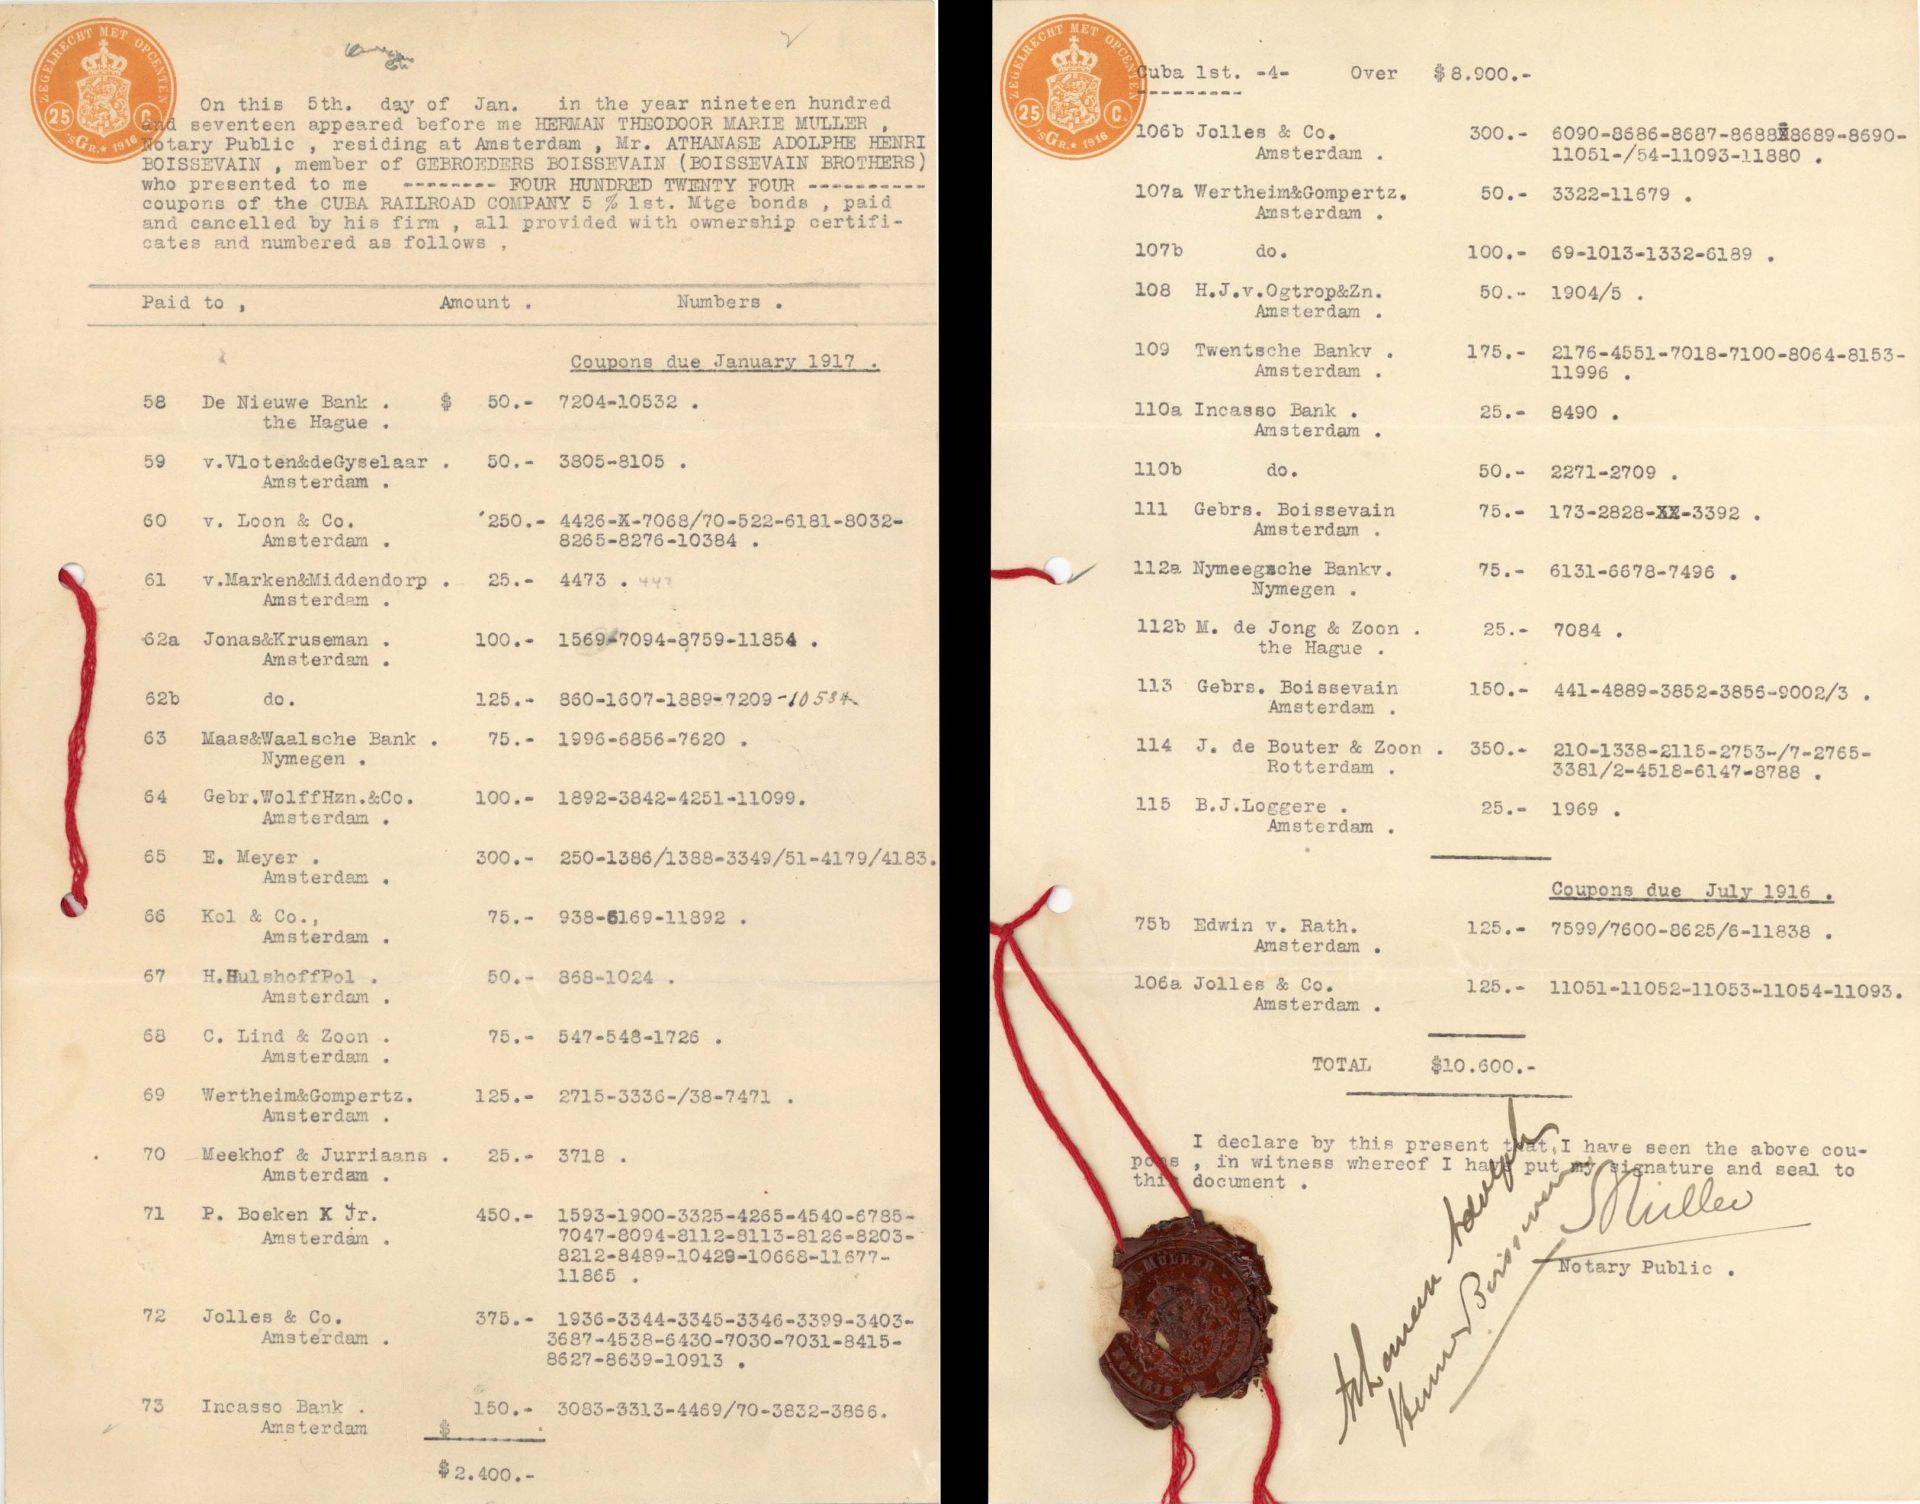 ZEGELRECHT MET OPCENTEN
25 C.
'sGr. * 1916 *
On this 5th. day of Jan. in the year nineteen hundred
and seventeen appeared before me HERMAN THEODOOR MARIE MULLER ,
Notary Public , residing at Amsterdam , Mr. ATHANASE ADOLPHE HENRI
BOISSEVAIN , member of GEBROEDERS BOISSEVAIN (BOISSEVAIN BROTHERS)
who presented to me -------- FOUR HUNDRED TWENTY FOUR ----------
coupons of the CUBA RAILROAD COMPANY 5 % 1st. Mtge bonds , paid
and cancelled by his firm , all provided with ownership certifi-
cates and numbered as follows ,
Paid to , Amount . Numbers .
Coupons due January 1917 .
58 De Nieuwe Bank . $ 50.- 7204-10532 .
the Hague .
59 v.Vloten&deGyselaar . 50.- 3805-8105 .
Amsterdam .
60 v. Loon & Co. 250.- 4426-X-7068/70-522-6181-8032-
Amsterdam . 8265-8276-10384 .
61 v.Marken&Middendorp . 25.- 4473 .
Amsterdam .
62a Jonas&Kruseman . 100.- 1569-7094-8759-11854 .
Amsterdam .
62b do. 125.- 860-1607-1889-7209-10584
63 Maas&Waalsche Bank . 75.- 1996-6856-7620 .
Nymegen .
64 Gebr.WolffHzn.&Co. 100.- 1892-3842-4251-11099.
Amsterdam .
65 E. Meyer . 300.- 250-1386/1388-3349/51-4179/4183.
Amsterdam .
66 Kol & Co., 75.- 938-6169-11892 .
Amsterdam .
67 H.HulshoffPol . 50.- 868-1024 .
Amsterdam .
68 C. Lind & Zoon . 75.- 547-548-1726 .
Amsterdam .
69 Wertheim&Gompertz. 125.- 2715-3336-/38-7471 .
Amsterdam .
70 Meekhof & Jurriaans . 25.- 3718 .
Amsterdam .
71 P. Boeken X Jr. 450.- 1593-1900-3325-4265-4540-6785-
Amsterdam . 7047-8094-8112-8113-8126-8203-
8212-8489-10429-10668-11677-
11865 .
72 Jolles & Co. 375.- 1936-3344-3345-3346-3399-3403-
Amsterdam . 3687-4538-6430-7030-7031-8415-
8627-8639-10913 .
73 Incasso Bank . 150.- 3083-3313-4469/70-3832-3866.
Amsterdam $
$2.400.-
ZEGELRECHT MET OPCENTEN
25 C.
'sGr. * 1916 *
Cuba 1st. -4- Over $8.900.-
106b Jolles & Co. 300.- 6090-8686-8687-8688X8689-8690-
Amsterdam . 11051-/54-11093-11880 .
107a Wertheim&Gompertz. 50.- 3322-11679 .
Amsterdam .
107b do. 100.- 69-1013-1332-6189 .
108 H.J.v.Ogtrop&Zn. 50.- 1904/5 .
Amsterdam .
109 Twentsche Bankv . 175.- 2176-4551-7018-7100-8064-8153-
Amsterdam . 11996 .
110a Incasso Bank . 25.- 8490 .
Amsterdam .
110b do. 50.- 2271-2709 .
111 Gebrs. Boissevain 75.- 173-2828-XX-3392 .
Amsterdam .
112a Nymeegsche Bankv. 75.- 6131-6678-7496 .
Nymegen .
112b M. de Jong & Zoon . 25.- 7084 .
the Hague .
113 Gebrs. Boissevain 150.- 441-4889-3852-3856-9002/3 .
Amsterdam .
114 J. de Bouter & Zoon . 350.- 210-1338-2115-2753-/7-2765-
Rotterdam . 3381/2-4518-6147-8788 .
115 B.J.Loggere . 25.- 1969 .
Amsterdam .
Coupons due July 1916 .
75b Edwin v. Rath. 125.- 7599/7600-8625/6-11838 .
Amsterdam .
106a Jolles & Co. 125.- 11051-11052-11053-11054-11093.
Amsterdam .
TOTAL $10.600.-
I declare by this present that,I have seen the above cou-
pons , in witness whereof I have put my signature and seal to
this document .
Müller
Notary Public .
Athanase Adolphe
Henri Boissevain
MÜLLER
NOTARIS